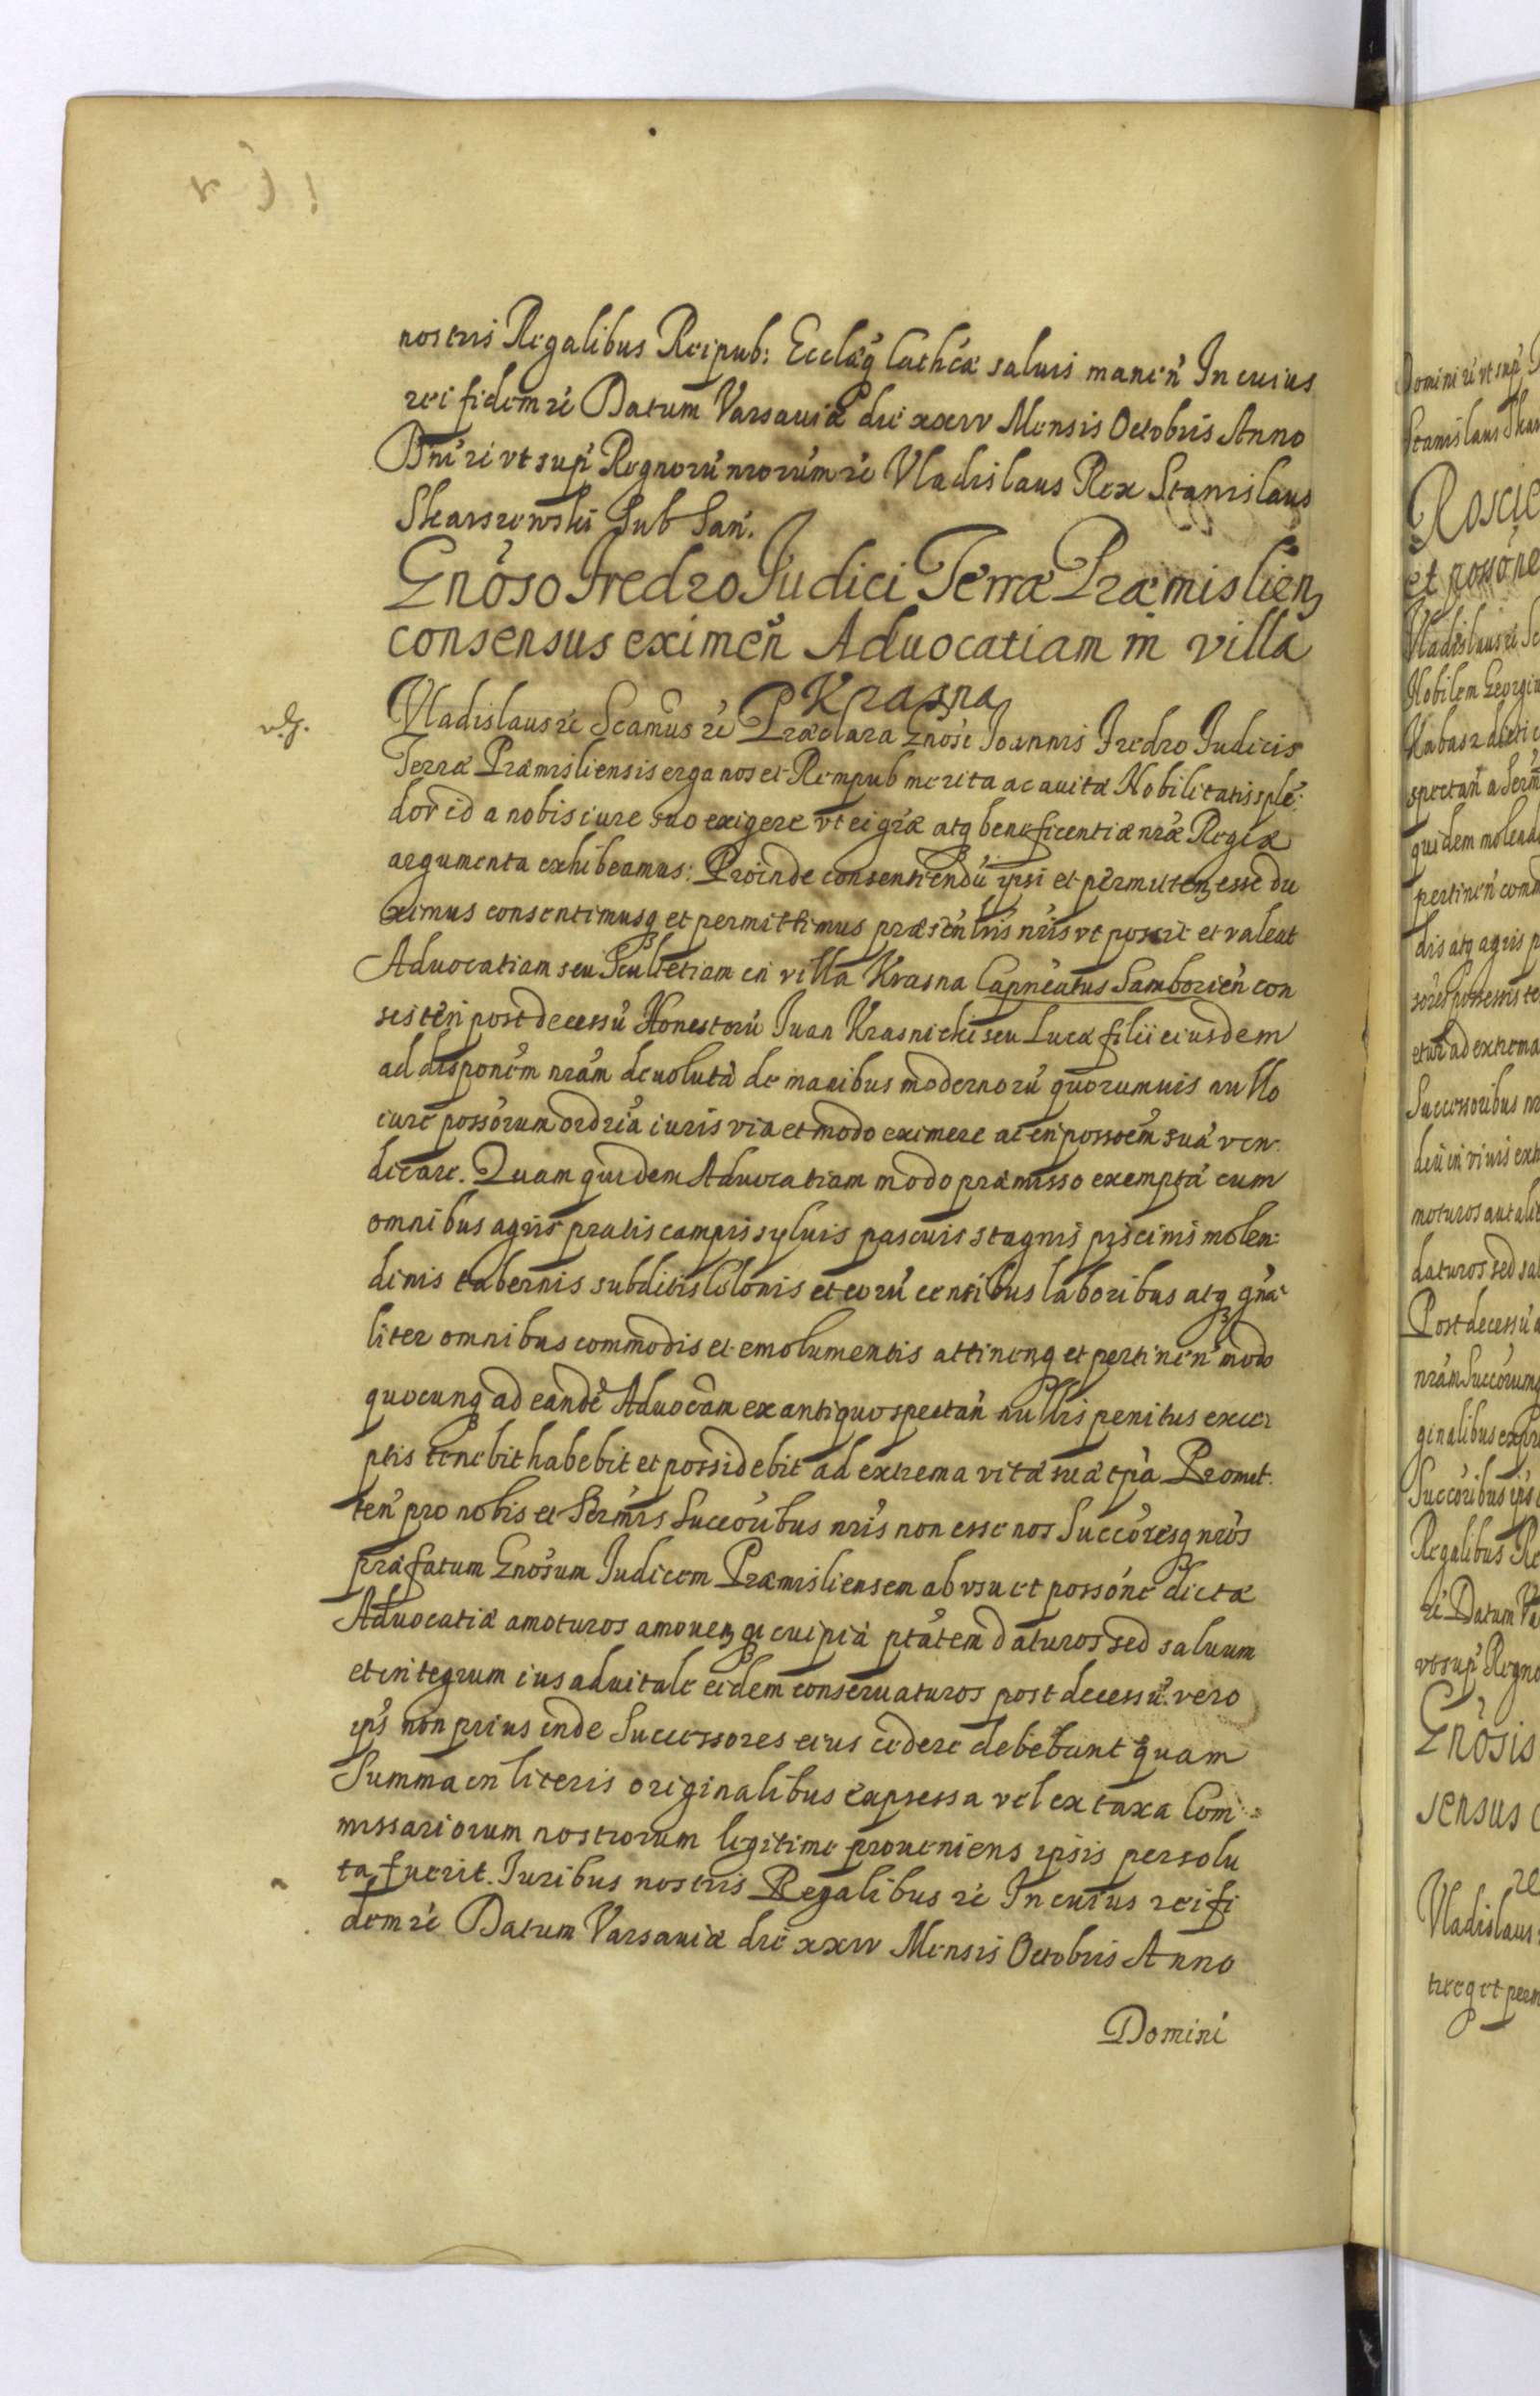 nostris Regalibus Reipub: Ecclãq Cathcæ saluis manen̄ In cuius
rei fidem rc Datum Varsaviæ die xxıv Mensis Octobris Anno
Dn̄i rc vt sup Regnorū nrorum rc Vladislaus Rex Stanislaus
Skarszewski Sub San.
Gnōso Fredro Judici Terræ Præmislien
consensus eximen̄ Aduocatiam in villa
Krasna
Vladislaus rc Scamus rc Præclara Gnosi Joannis Fredro Judicis
Terræ Præmisliensis erga nos et Rempub merita ac auitæ Nobilitatis splē-
dor id a nobis iure suo exigere vt ei græ atq beneficentiæ nræ Regiæ
argumenta exhibeamus: Proinde consentiendū ipsi et permitten esse du
ximus consentimusq et permittimus præsen lris nris vt possit et valeat
Aduocatiam seu Scultetiam in villa Krasna Capneatus Samborien̄ con
sisten post decessū Honestorū Iuan Krasnicki seu Lucæ filii eiusdem
ad disponem nram deuolutā de manibus modernorū quorumuis nullo
iure possorum ordria iuris via et modo eximere ac in possoem suā ven
dicare. Quam quidem Aduocatiam modo præmisso exemptā cum
omnibus agris pratis campis syluis pascuis stagnis piscinis molen-
dinis tabernis subditis Colonis et eorū censibus laboribus atq gn̄a-
liter omnibus commodis et emolumentis attinenq et pertinen̄ modo
quocunq ad eandē Aduocām ex antiquo spectan̄ nullis penitus exce
ptis tenebit habebit et possidebit ad extrema vitæ suæ tpa Promit-
ten̄ pro nobis et Sermis Succoribus nris non esse nos Succoresq nros
præfatum Gnosum Judicem Præmisliensem ab vsu et possone dictæ
Aduocatiæ amoturos amouenq cuipiā ptatem daturos sed saluum
et integrum ius aduitale eidem conseruaturos post decessū vero
ips non prius inde Successores eius cedere debebunt quam
Summa in literis originalibus expressa vel ex taxa Com-
missariorum nostrorum legitime proueniens ipsis persolu
ta fuerit. Juribus nostris Regalibus rc In cuius rei fi
dem rc Datum Varsaviæ die xxıv Mensis Octobris Anno
Domini